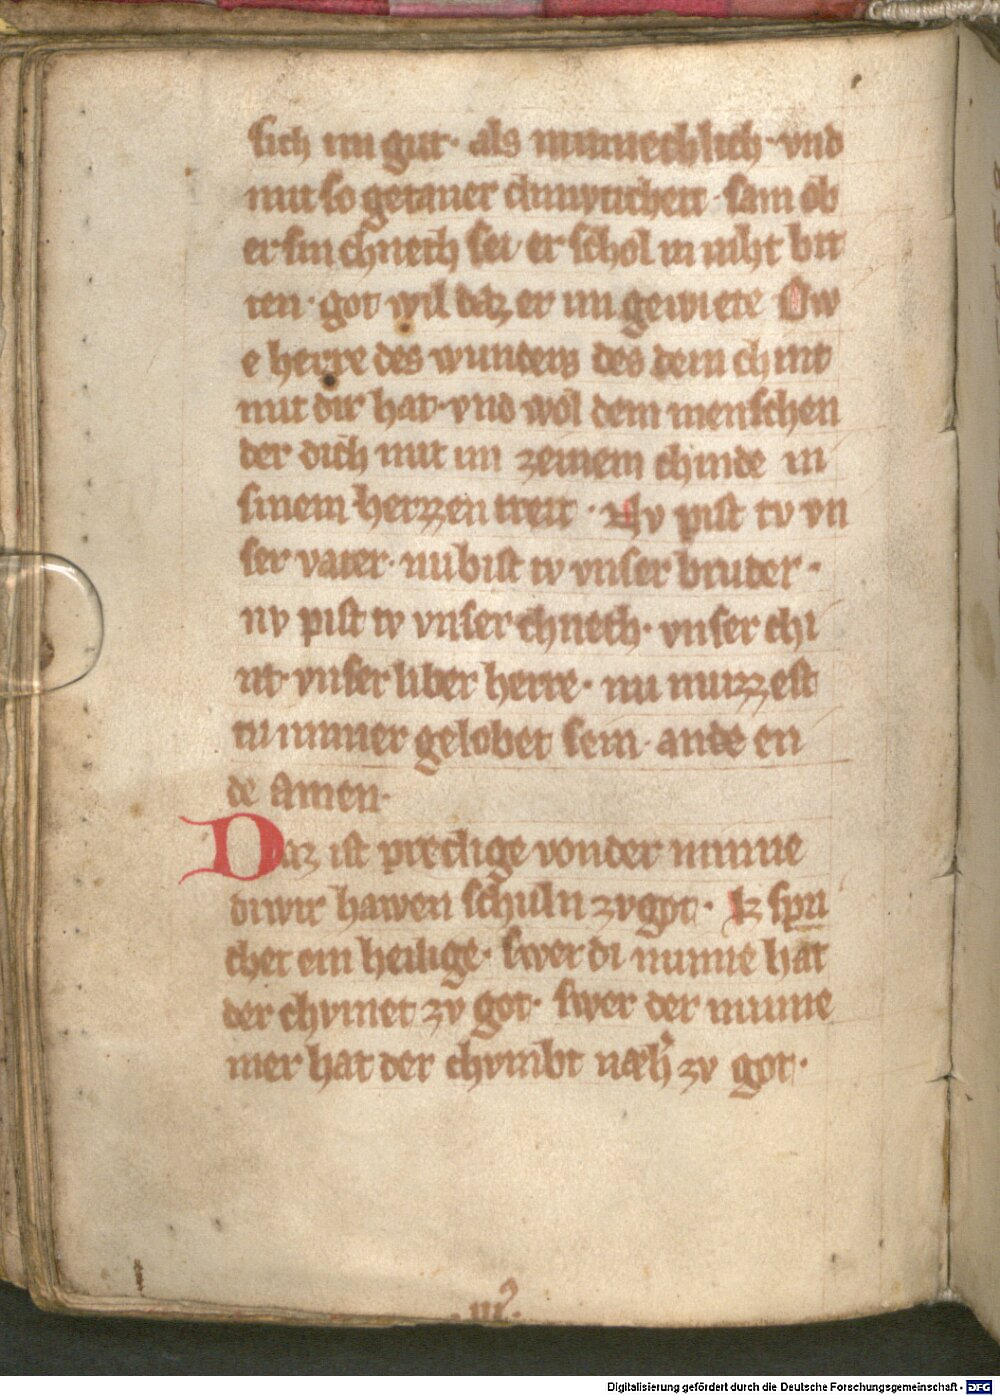 sich im gut · als minnechlich · vnd
mit so getaner dimvticheit · sam ob
er sin chnech sei er schol in niht bit
ten · got wil daz er im gewiete Ow
e herre des wunders des dem chint
mit dir hat · vnd wol dem menschen
der dich mit im zeinem chinde in
sinem herzzen treit · Nv pist tv vn
ser vater · nu bist tv vnser bruder ·
nv pist tv vnser chnech · vnser chi
nt · vnser liber herre · nu muzzest
tu immer gelobet sein · an de en
de amen ·
Daz ist predige von der minne
di wir hawen schuln zv got · Iz spri
chet ein heilige · swer di minne hat
der chvmet zv got · swer der minne
mer hat der chvmbt næh zv got ·
· iii ·
Digitalisierung gefördert durch die Deutsche Forschungsgemeinschaft - DFG